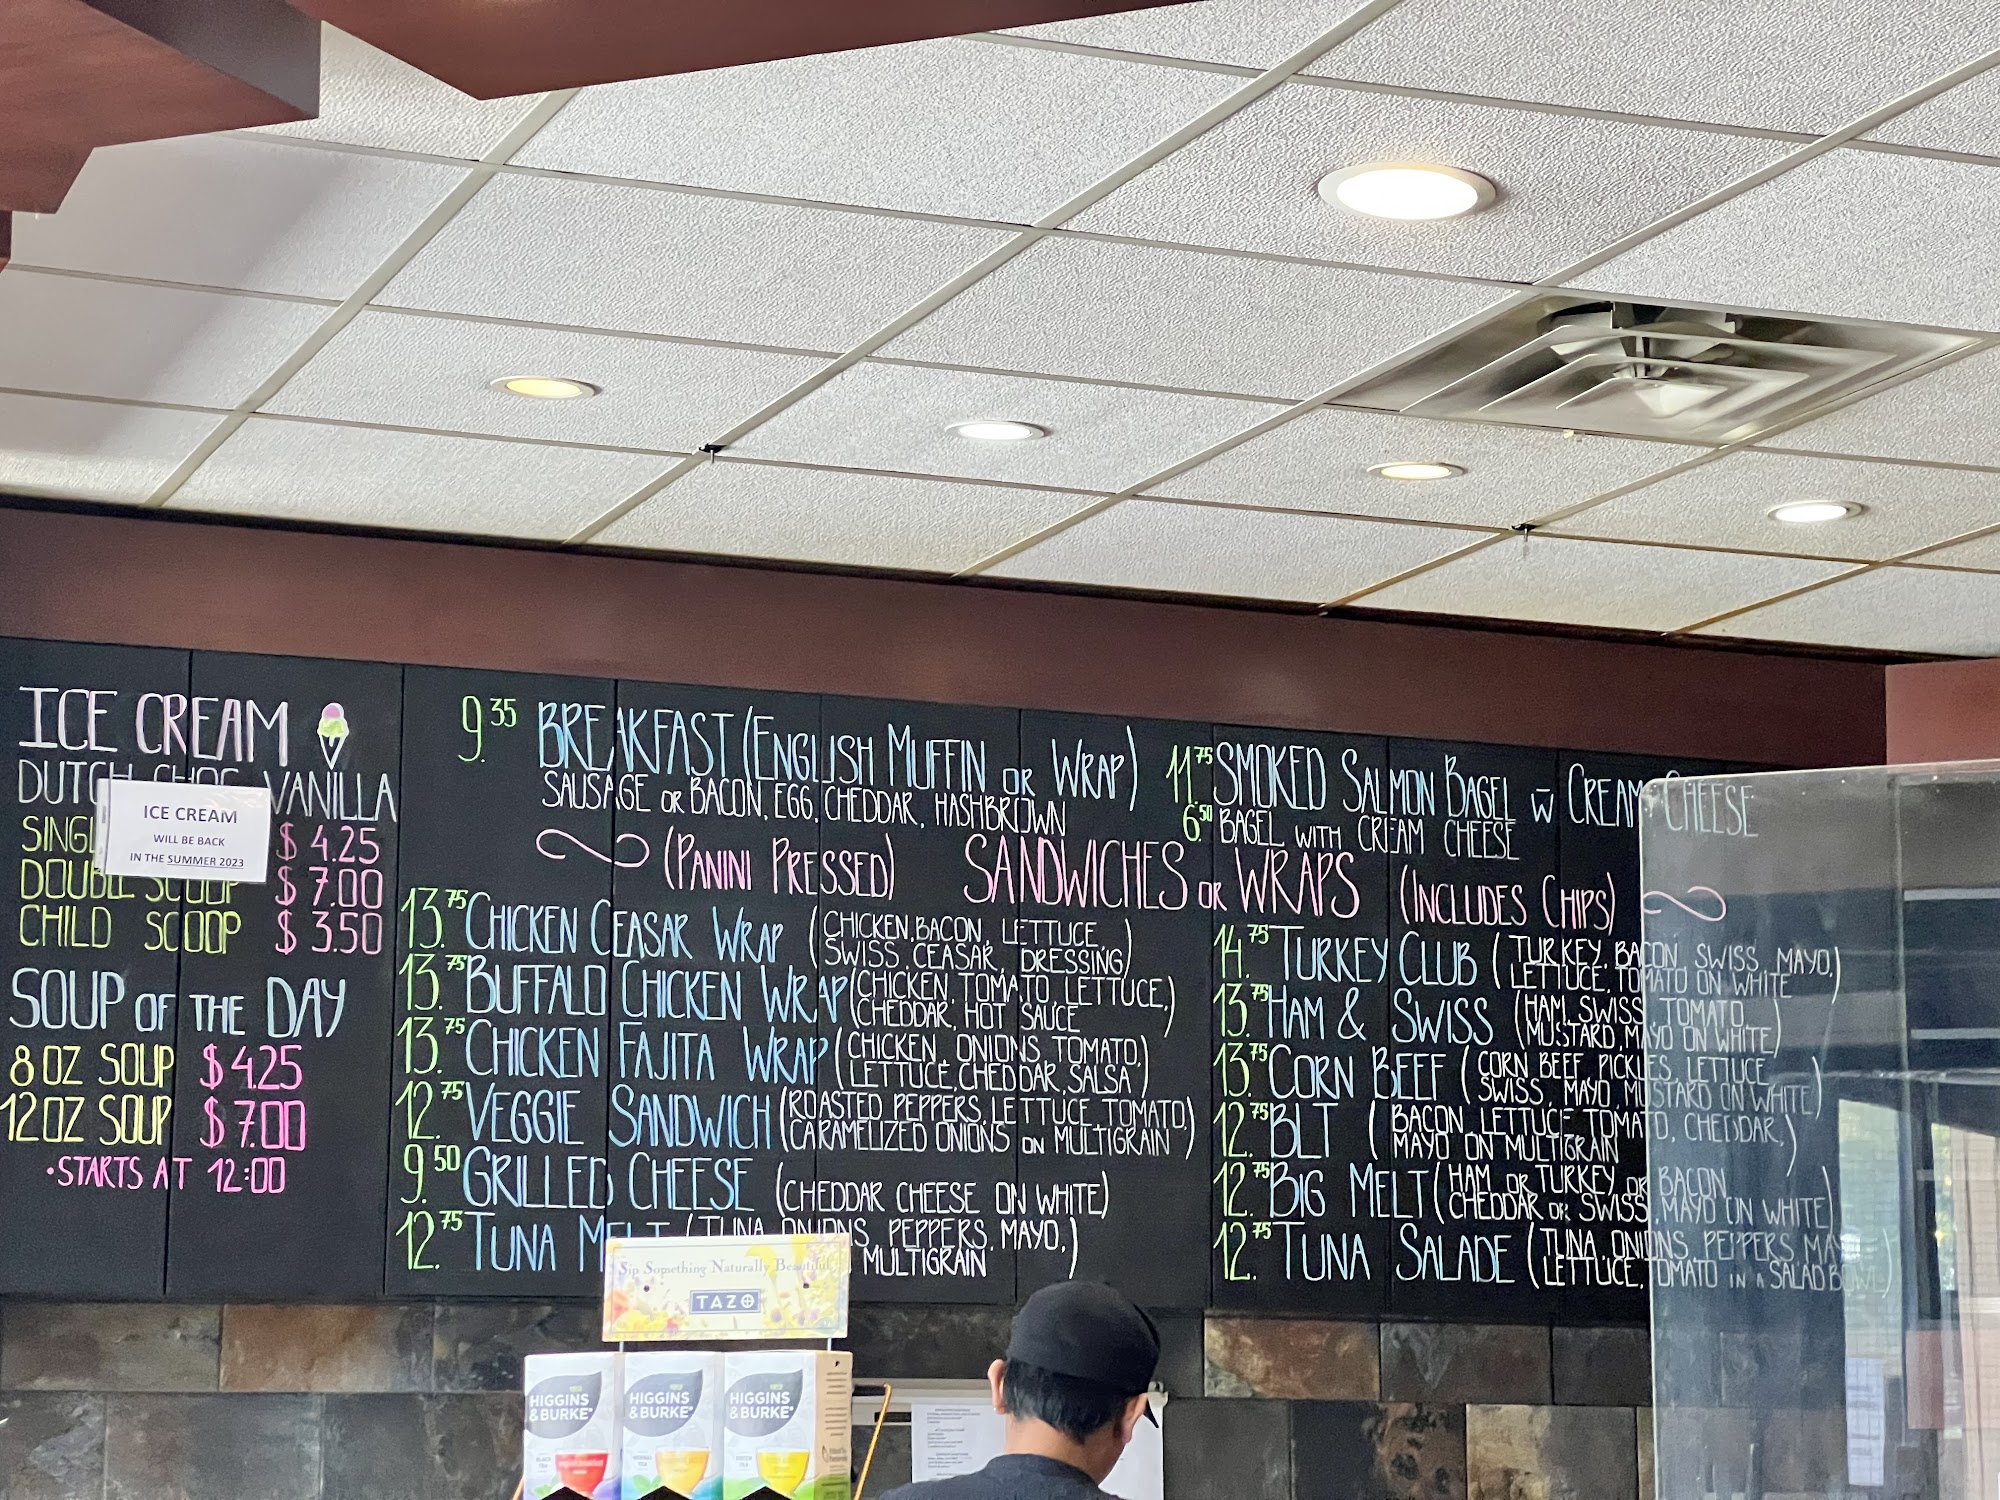 ICE CREAM
DUTCH CHOC VANILLA
ICE CREAM
WILL BE BACK
IN THE SUMMER 2023
SINGL $ 4.25
DOUBLE SCOOP $ 7.00
CHILD SCOOP $ 3.50
SOUP OF THE DAY
8 OZ SOUP $4.25
12 OZ SOUP $7.00
•STARTS AT 12:00
9.35 BREAKFAST (ENGLISH MUFFIN OR WRAP)
SAUSAGE OR BACON, EGG, CHEDDAR, HASHBROWN
11.75 SMOKED SALMON BAGEL W CREAM CHEESE
6.50 BAGEL WITH CREAM CHEESE
(PANINI PRESSED) SANDWICHES OR WRAPS (INCLUDES CHIPS)
13.75 CHICKEN CEASAR WRAP (CHICKEN, BACON, LETTUCE,
SWISS, CEASAR, DRESSING)
13.75 BUFFALO CHICKEN WRAP (CHICKEN, TOMATO, LETTUCE,
CHEDDAR, HOT SAUCE)
13.75 CHICKEN FAJITA WRAP (CHICKEN, ONIONS, TOMATO,
LETTUCE, CHEDDAR, SALSA)
12.75 VEGGIE SANDWICH (ROASTED PEPPERS, LETTUCE, TOMATO,
CARAMELIZED ONIONS ON MULTIGRAIN)
9.50 GRILLED CHEESE (CHEDDAR CHEESE ON WHITE)
12.75 TUNA MELT (TUNA, ONIONS, PEPPERS, MAYO,
MULTIGRAIN)
14.75 TURKEY CLUB (TURKEY, BACON, SWISS, MAYO,
LETTUCE, TOMATO ON WHITE)
13.75 HAM & SWISS (HAM, SWISS, TOMATO,
MUSTARD, MAYO ON WHITE)
13.75 CORN BEEF (CORN BEEF, PICKLES, LETTUCE,
SWISS, MAYO, MUSTARD ON WHITE)
12.75 BLT (BACON, LETTUCE, TOMATO, CHEDDAR,
MAYO ON MULTIGRAIN)
12.75 BIG MELT (HAM OR TURKEY OR BACON
CHEDDAR OR SWISS, MAYO ON WHITE)
12.75 TUNA SALADE (TUNA, ONIONS, PEPPERS, MAYO
LETTUCE, TOMATO IN A SALAD BOWL)
Sip Something Naturally Beautiful
TAZO
HIGGINS
& BURKE
HIGGINS
& BURKE
HIGGINS
& BURKE